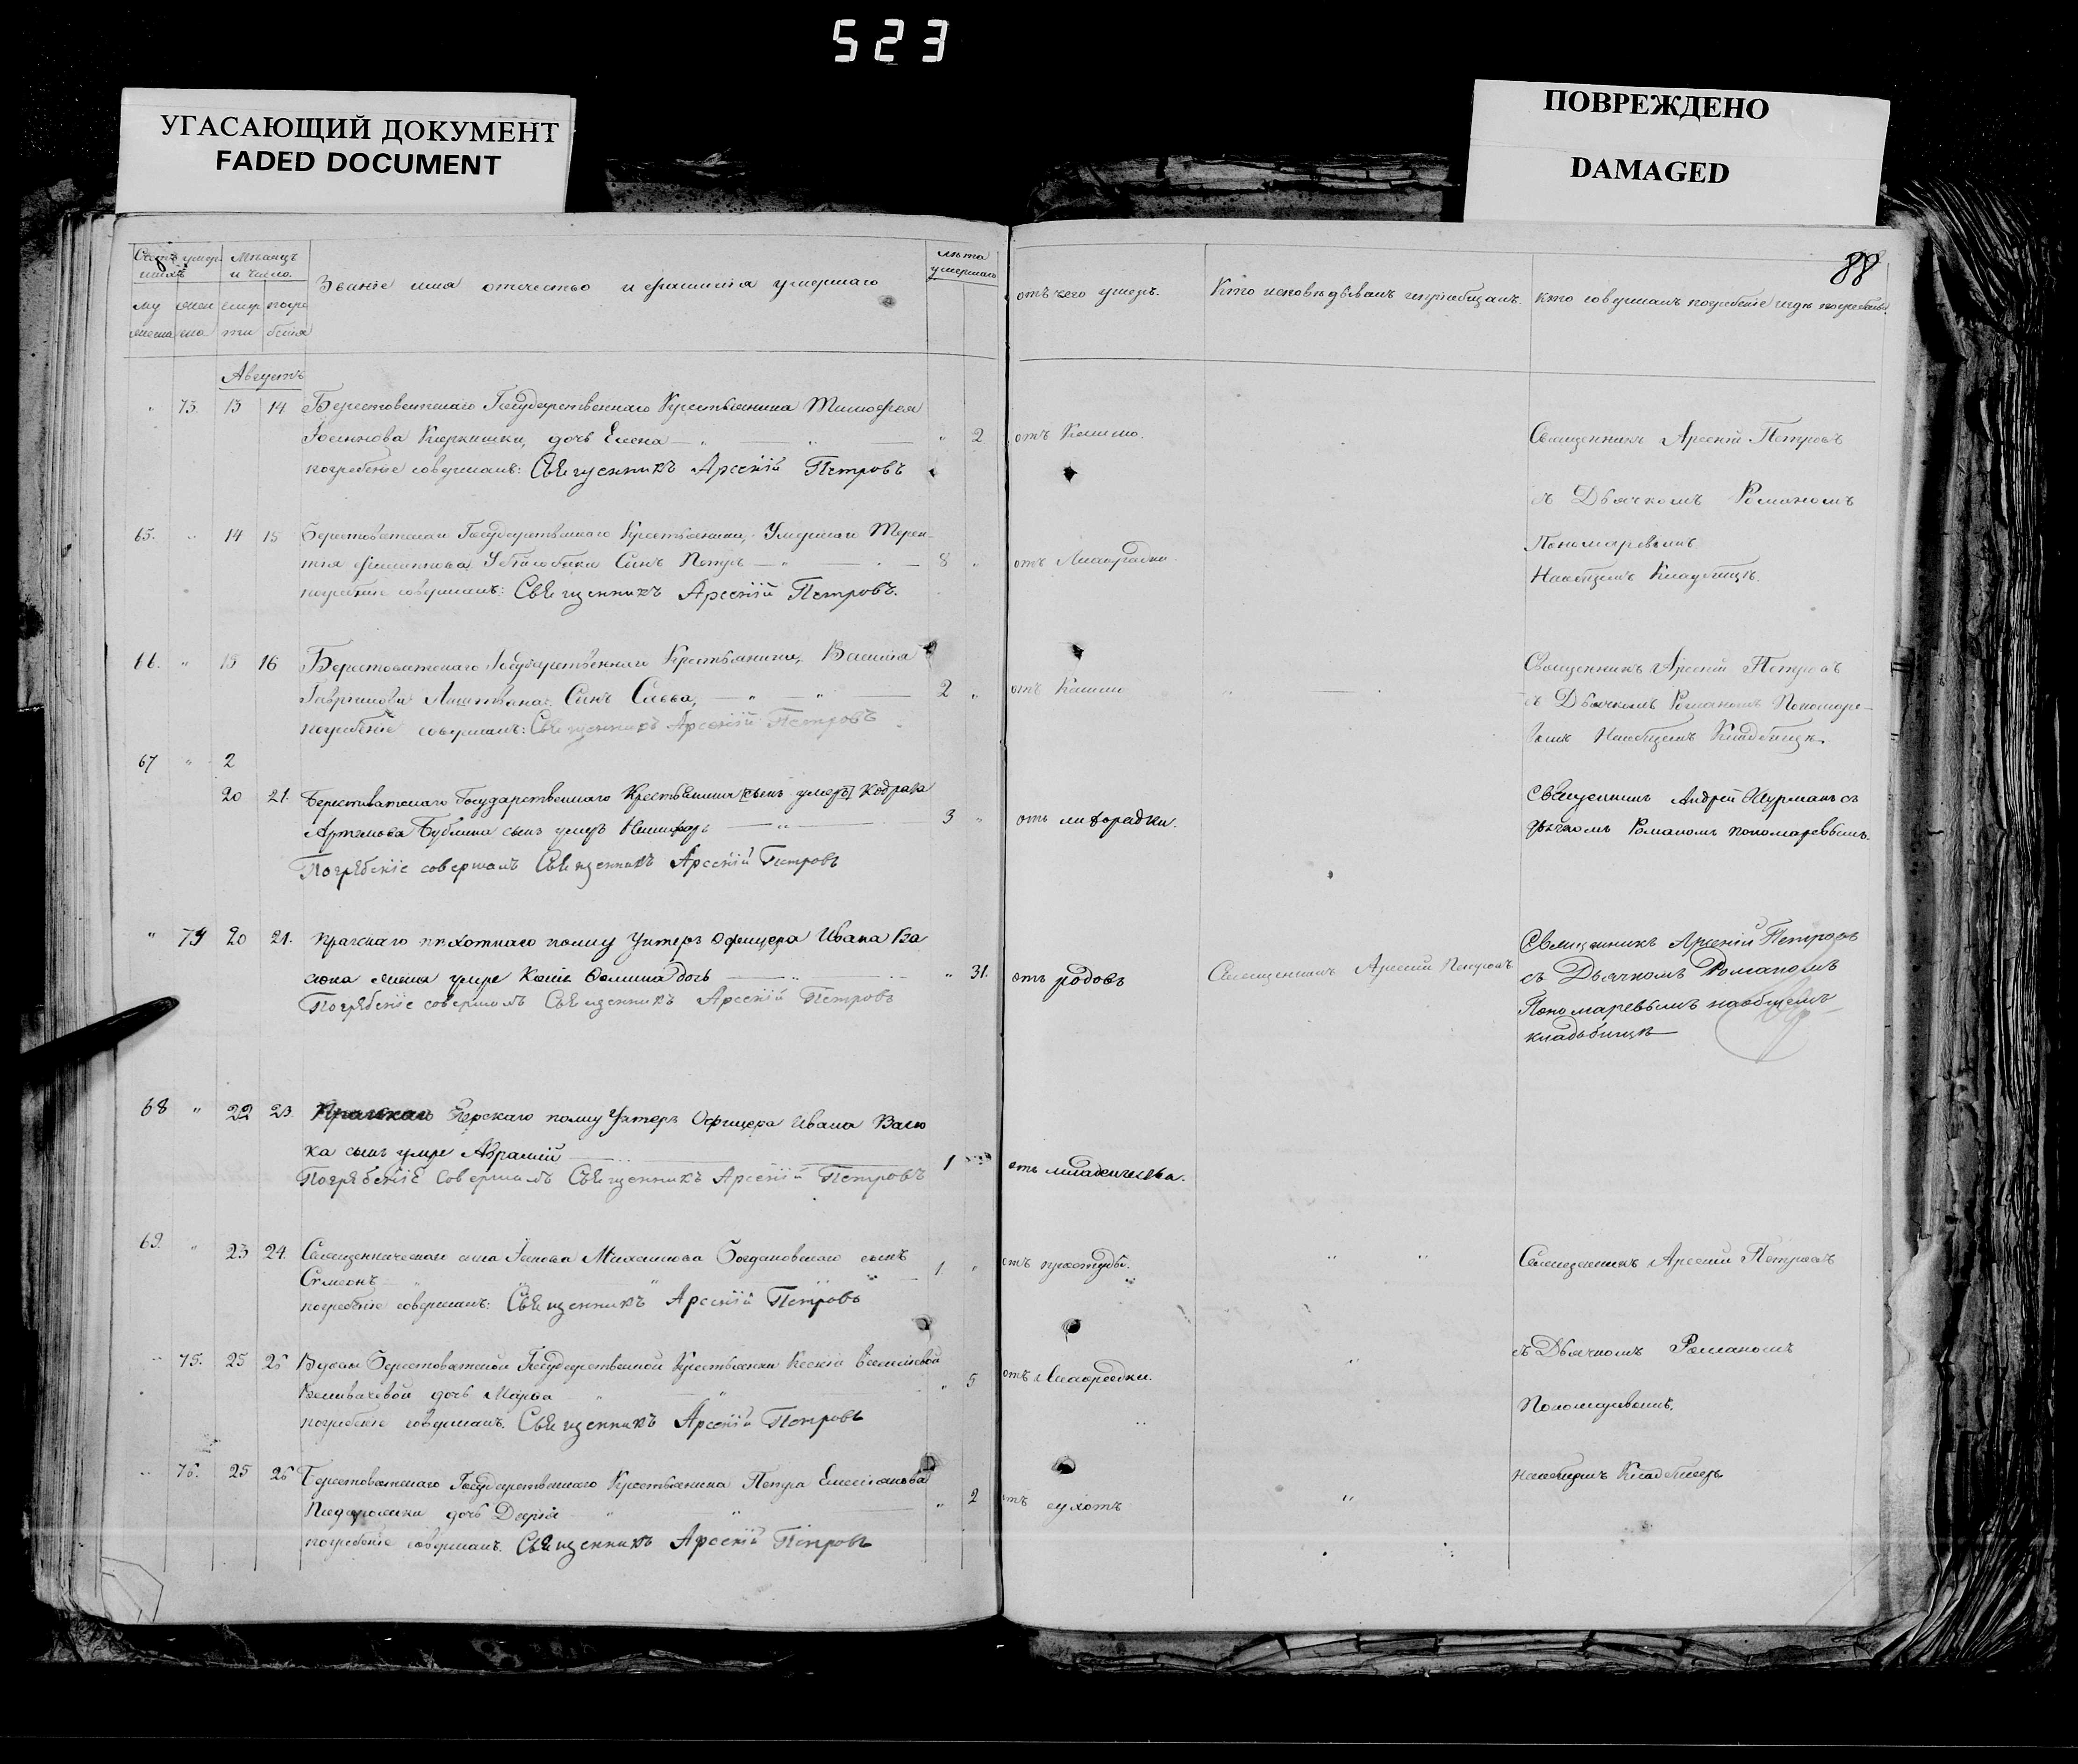 523
УГАСАЮЩИЙ ДОКУМЕНТ
FADED DOCUMENT
ПОВРЕЖДЕНО
DAMAGED
88
Счетъ умер
шихъ
Мѣсяцъ
и число
Званіе имя отчество и фамилія умершаго
лѣта
умершаго
му жен смер погре
жеска ска ти бенія
отъ чего умеръ.
Кто исповѣдывалъ и пріобщалъ.
Кто совершалъ погребеніе и гдѣ погребены.
Августъ
" 73. 13 14 Берестоватскаго Государственнаго Крестьянина Тимофея
дочь Елена " 2 отъ Кашлю.
погребеніе совершалъ: Священникъ Арсеній Петровъ
Священникъ Арсеній Петровъ
съ Дьячкомъ Романомъ
65. " 14 15 Берестоватскаго Государственнаго Крестьянина, Умершаго Терен-
тія Сынъ Петръ 8 " отъ Лихорадки
погребеніе совершалъ: Священникъ Арсеній Петровъ.
Пономаревымъ
Наобщемъ Кладбищѣ.
66. " 15 16 Берестоватскаго Государственнаго Крестьянина, Василія
Гаврилова Сынъ Савва, 2 " отъ Кашлю
погребеніе совершалъ: Священникъ Арсеній Петровъ
Священникъ Арсеній Петровъ
съ Дьячкомъ Романомъ Пономаре-
вымъ Наобщемъ Кладбищѣ.
67 " 2
20 21. Берестоватскаго Государственнаго Крестьянина [сынъ умеръ] Кодрата
Артемова Бублика сынъ умеръ Никифоръ 3 " отъ лихорадки.
Погрѣбеніе совершалъ Священникъ Арсеній Петровъ
Священникъ Андрей Шурманъ съ
дьячкомъ Романомъ пономаревымъ.
" 74 20 21. Пражскаго пѣхотнаго полку Унтеръ Офицера Ивана Ва
сюка жена умре Фомина дочь " 31. отъ родовъ
Священникъ Арсеній Петровъ
Погрѣбеніе совершалъ Священникъ Арсеній Петровъ
Священникъ Арсеній Петровъ
съ Дьячкомъ Романомъ
Пономаревымъ наобщемъ
кладбищѣ
68 " 22 23. Егерскаго полку Унтеръ Офицера Ивана Васю
ка сынъ умре Абрамій 1 отъ младенчества.
Погрѣбеніе Совершалъ Священникъ Арсеній Петровъ
69. " 23 24. Священическаго сына Іякова Михаилова Богдановскаго сынъ
Сѵмеонъ 1. " отъ простуды.
погребеніе совершалъ: Священникъ Арсеній Петровъ
Священникъ Арсеній Петровъ
" 75. 25 26 Вдовы Берестоватской Государственной Крестьянки Ксеніи Васильевой
дочь Марѳа " 5 отъ Лихорадки.
погребеніе совершалъ. Священникъ Арсеній Петровъ
съ Дьячкомъ Романомъ
Пономаревымъ.
" 76. 25 26 Берестоватскаго Государственнаго Крестьянина Петра Емеліанова
дочь Дарія " 2 отъ сухотъ
погребеніе совершалъ. Священникъ Арсеній Петровъ
наобщемъ Кладбищѣ